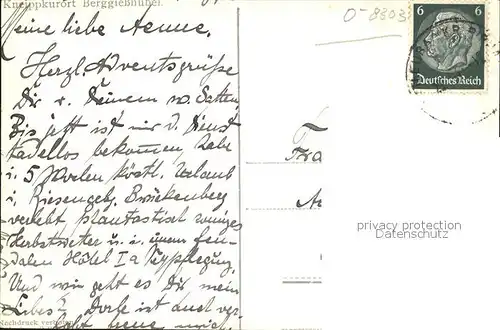 Kneippkurort Berggießhübel.
Meine liebe Aenne.
Herzl. Adventsgrüße
Dir u. Deinem w. Gatten.
Bis jetzt ist mir d. Dienst
tadellos bekommen, habe
i. 5 Wochen köstl. Urlaub
i. Riesengeb. Brückenberg
verlebt phantastisch sonniges
Herbstwetter u. i. einem feu-
dalen Hotel Ia Verpflegung.
Und wie geht es Dir mein
Liebes?
Nachdruck verboten
O-8303
6 6
Deutsches Reich
privacy protection
for
www.ansichtskartenversand.com